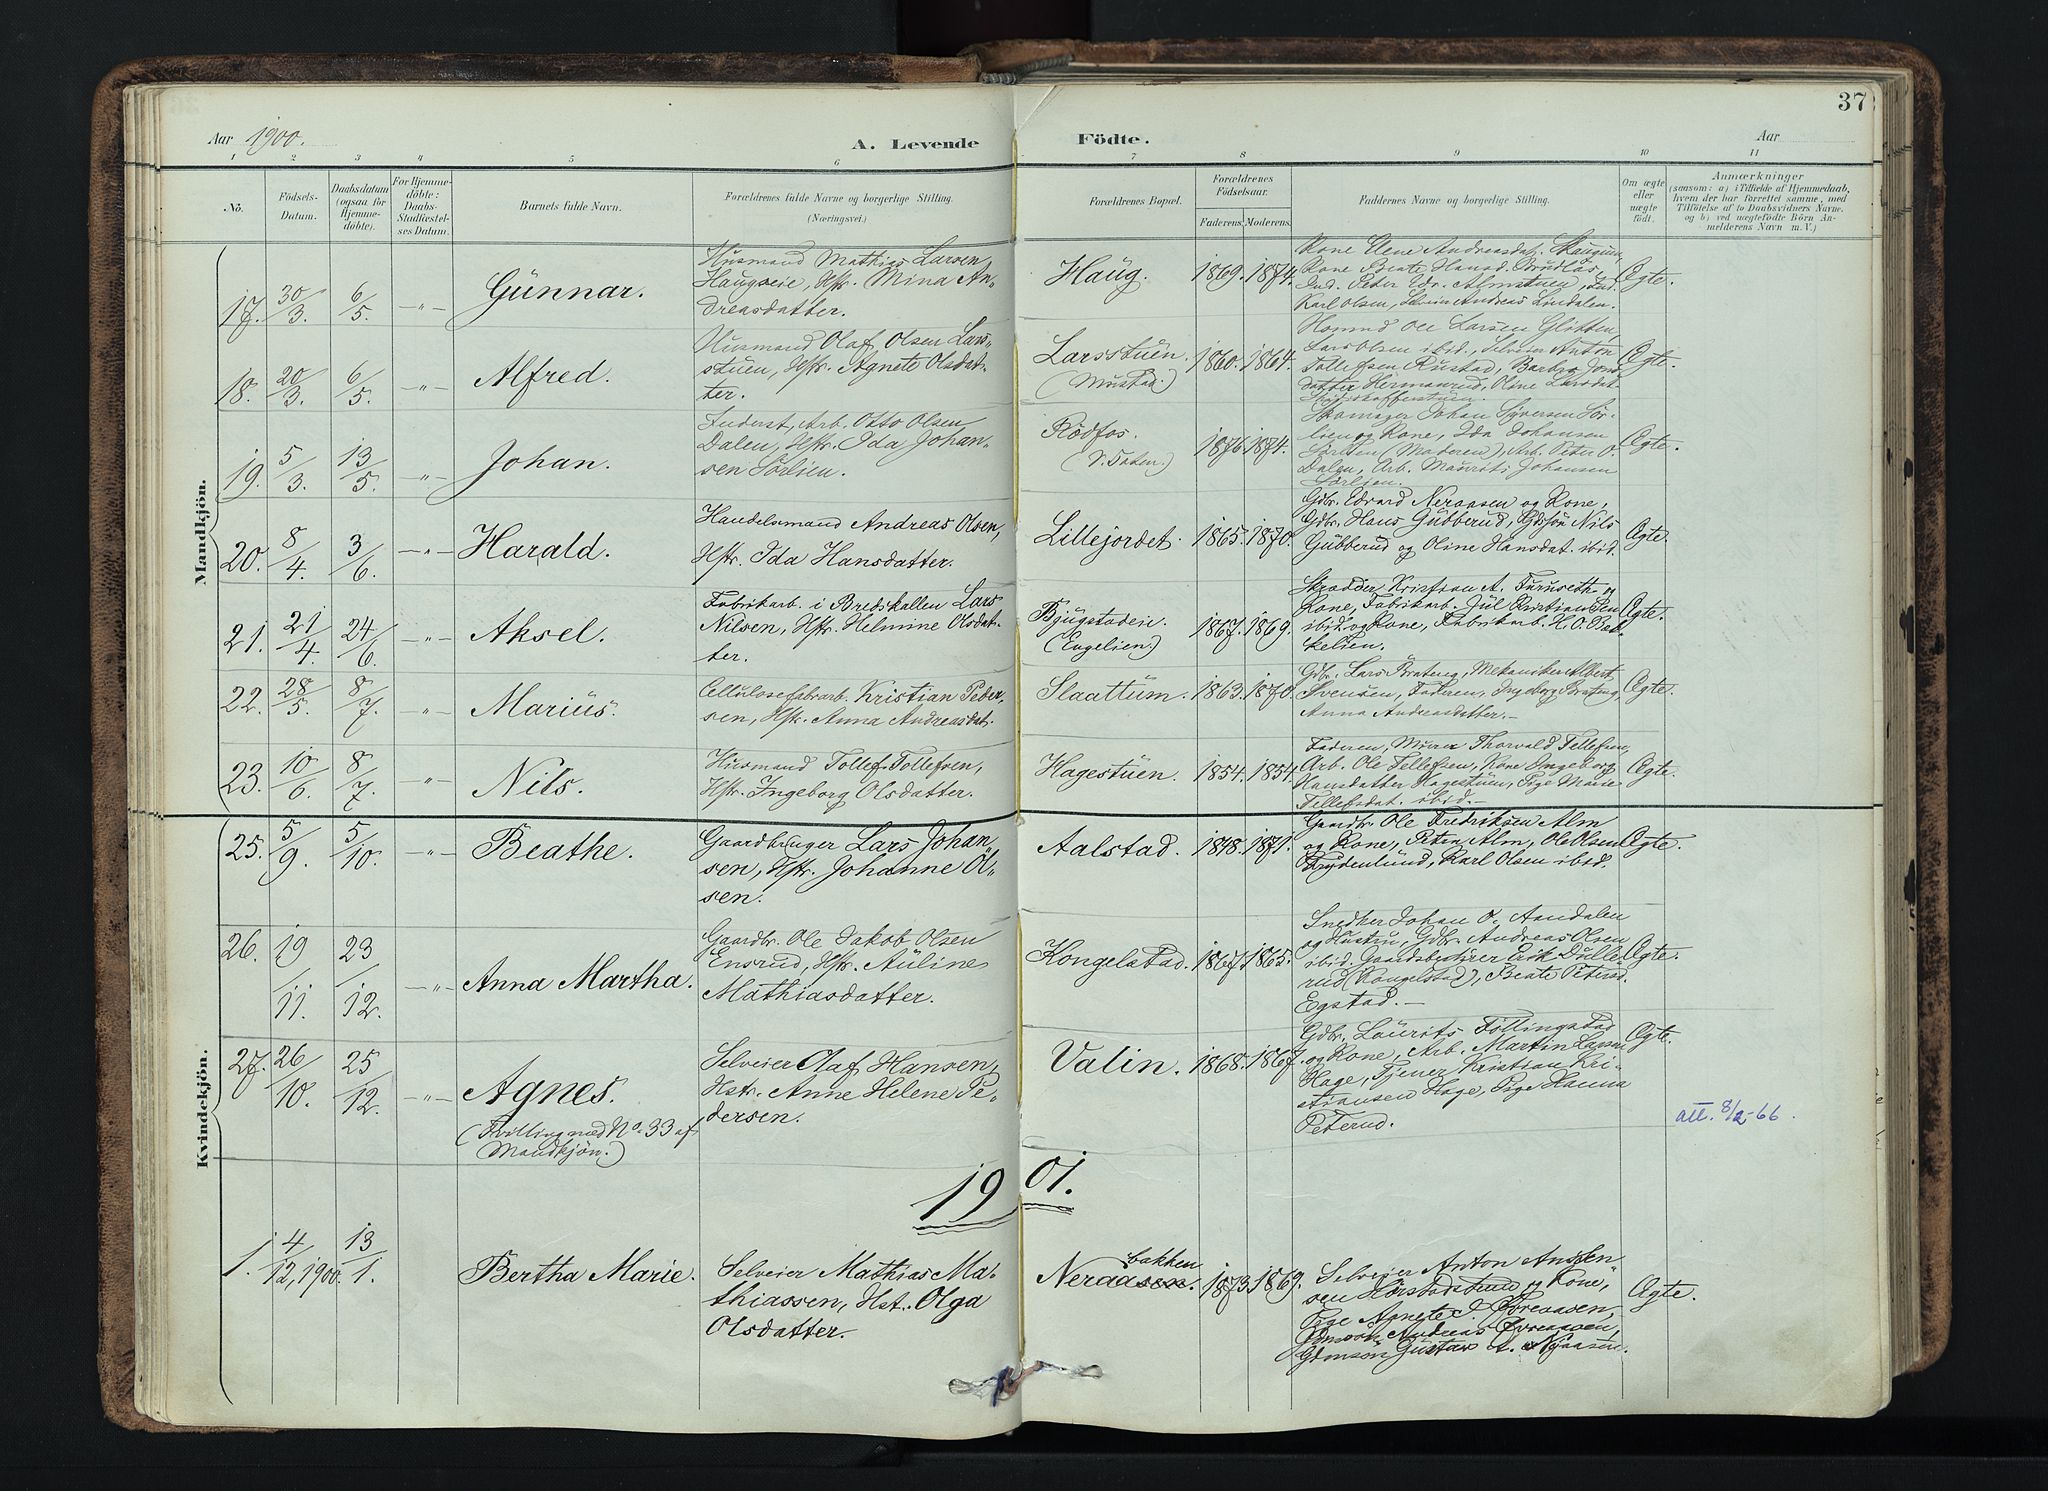 37
Aar 1900.
A. Levende Födte.
Aar
1 2 3 4 5 6 7 8 9 10 11
Nö.
Födsels-
Datum.
Daabsdatum
(ogsaa for
Hjemme-
döbte).
For Hjemme-
döbte:
Daabs-
Stadfæstel-
ses Datum.
Barnets fulde Navn.
Forældrenes fulde Navne og borgerlige Stilling.
(Næringsvei.)
Forældrenes Bopæl.
Forældrenes
Födselsaar.
Faderens. Moderens.
Faddernes Navne og borgerlige Stilling.
Om ægte
eller
uægte
födt.
Anmærkninger
(saasom: a) i Tilfælde af Hjemmedaab,
hvem der har forrettet samme, med
Tilföielse af to Daabsvidners Navne.
og b) ved uægtefödte Börn An-
melderens Navn m. V.)
Mandkjön.
17. 30/3. 6/5. -„- Gunnar.
Husmand Mathias Larsen
Haugseie, Hstr. Mina An-
dreasdatter.
Haug. 1869. 1874.
Kone Elene Andreasdat. Skaugun
Kone Beate Hansd. Brudlös,
Ind. Peter Edv. Almstuen, Ind.
Karl Olsen, Selveier Andreas Lindalen.
Ægte.
18. 20/3. 6/5. -„- Alfred.
Husmand Olaf Olsen Lars-
stuen, Hstr. Agnete Olsdat-
ter.
Larsstuen.
(Mustad.)
1860. 1864.
Ole Larsen Glötten,
Lars Olsen ibid., Selveier Anton
Tollefsen Rustad, Barbro Jons
datter Hermanrud, Oline Larsdat.
Ægte.
19. 5/3. 13/5. -„- Johan.
Inderst, Arb. Otto Olsen
Dalen, Hstr. Ida Johan-
sen Sörlien.
Rödfos.
(V. Toten.)
1876. 1874.
Skomager Johan Syversen Sör-
lien og Kone, Ida Johansen
Sörlien (Moderen), Arb. Peter O.
Dalen, Arb. Maurits Johansen
Sörlien.
Ægte.
20. 8/4. 3/6. -„- Harald.
Handelsmand Andreas Olsen,
Hstr. Ida Hansdatter.
Lillejordet. 1865. 1870.
Gdbr. Edvard Neraasen og Kone,
Gdbr. Hans Gubberud, Gdsön Nils
Gubberud og Oline Hansdat. ibid.
Ægte.
21. 21/4. 24/6. -„- Aksel.
Fabrikarb. i Bredskallen Lars
Nilsen, Hstr. Helmine Olsdat-
ter.
Bjugstadeie.
(Engelien)
1867. 1869.
Skrædder Kristian A. Furuseth og
Kone, Fabrikarb. Jul Kristiansen
ibid. og Kone, Fabrikarb. H. O. Bak-
kelien.
Ægte.
22. 28/5. 8/7. -„- Marius.
Cellulosefabarb. Kristian Peder-
sen, Hstr. Anna Andreasdat.
Slaattum. 1863. 1870.
Gdbr. Lars Braateng, Mekaniker Albert
Svensen, Faderen, Ingeborg Brateng,
Anna Andreasdatter.
Ægte.
23. 10/6. 8/7. -„- Nils.
Husmand Tollef Tollefsen,
Hstr. Ingeborg Olsdatter.
Hagestuen. 1854. 1854.
Faderen, Murer Thorvald Tellefsen,
Arb. Ole Tellefsen, Kone Ingeborg
Hansdatter Hagestuen, Pige Marie
Tellefsdat. ibid.
Ægte.
Kvindekjön.
25. 5/9. 5/10. -„- Beathe.
Gaardbruger Lars Johan-
sen, Hstr. Johanne Ol-
sen.
Aalstad. 1848. 1871.
Gaardbr. Ole Fredriksen Alm
og Kone, Peter Alm, Ole Olsen
Frydenlund, Karl Olsen ibid.
Ægte.
26. 19/11. 23/12. -„- Anna Martha.
Gaardbr. Ole Jakob Olsen
Ensrud, Hstr. Auline
Mathiasdatter.
Kongelstad. 1867. 1865.
Snedker Johan O. Aandalen
og Hustru, Gdbr. Andreas Olsen
ibid. Gaardbestyrer Erik Dulle-
rud (Kongelstad), Beate Petersd.
Egstad.
Ægte.
27. 26/10. 25/12. -„- Agnes.
(Tvilling med No. 33 af
Mandkjön.)
Selveier Olaf Hansen,
Hstr. Anne Helene Pe-
dersen.
Valin. 1868. 1867.
Gdbr. Laurits Föllingstad
og Kone, Arb. Martin Larsen
Hage, Tjener Kristian Kri-
stiansen Hage, Pige Hanna
Peterud.
Ægte.
att. 8/2-66.
1901.
1. 4/12, 1900. 13/1. Bertha Marie.
Selveier Mathias Ma-
thiassen, Hst. Olga
Olsdatter.
bakken
Neraasen. 1873. 1869.
Selveier Anton
og Kone,
Pige Agnete J. Övreaasen,
Gdmsön Andreas Övreaasen,
Gdmsön Gustav A.
Ægte.